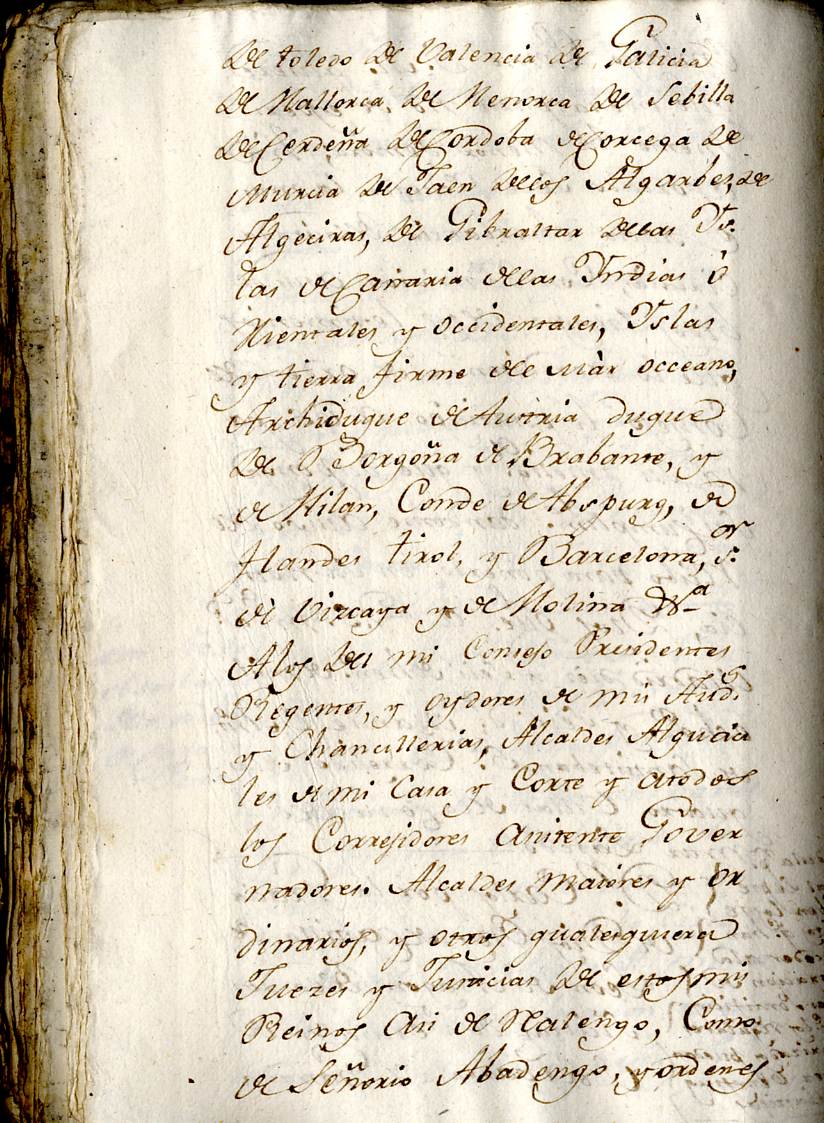 de toledo de Valencia de Galicia
de Mallorca, de Menorca de Sebilla
de Cerdeña de Cordoba de Corcega de
Murcia de Jaen de los Algarbes, de
Algeciras, de Gibraltar de las Ys-
las de Canaria de las Yndias ô
rientales y occidentales, Yslas
y tierra firme de el Màr occeano,
Archiduque de Austria duque
de Borgoña de Brabante, y
de Milan, Conde de Abspurg, de
flandes tirol, y Barcelona, s.or
de Vizcaya y de Molina &a
Alos del mi Consejo Presidentes
Regentes, y oydores de mis Aud.s
y Chancillerias, Alcaldes Alguaci
les de mi Casa y Corte y atodos
los Corregidores asistente Gover
nadores. Alcaldes maiores y or
dinarios, y otros qualesquiera
Juezes y Justicias de estos mis
Reinos asi de Realengo, Como
de Señorio Abadengo, y ordenes